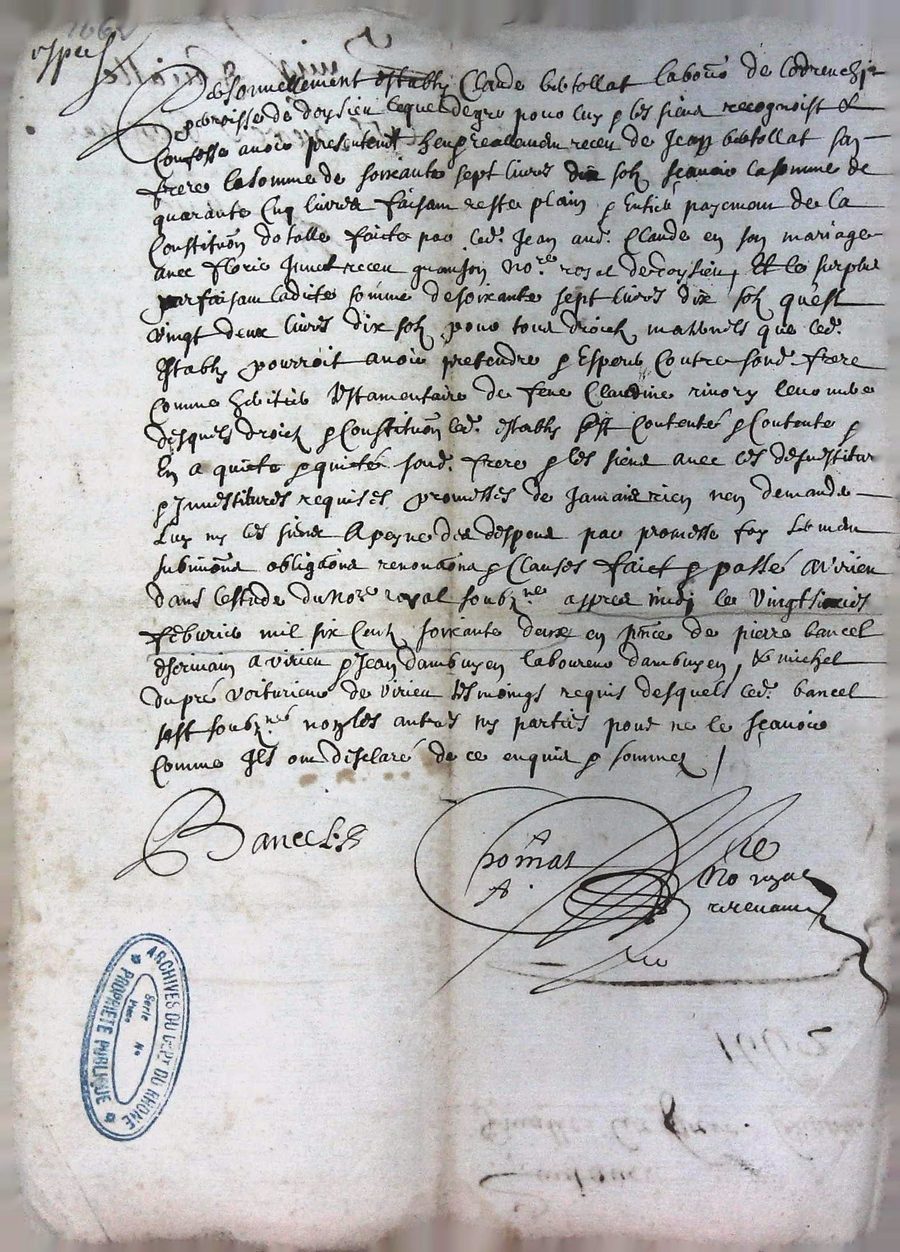 1662
expedié
Personnellement estably Claude bertollat labou^r de
parroisse de doysieu lequel de gre pour luy & les siens recognoist &
Confesse avoir presentemt heu & reallemen receu de Jean bertollat son
frere la somme de soixante sept livres dix solz scavoir la somme de
quarante Cinq livres faisant reste plain & Entier payement de la
Constituôn dotalle faicte par led. Jean aud. Claude en son mariage
avec floric receu no^re royal de doysieu, Et le surplus
parfaisan ladite somme de soixante sept livres dix solz quest
vingt deux livres dix solz pour tous droictz maternels que led.
Estably pourroit avoir pretendre & Esperer Contre sond. frere
comme heritier testamentaire de feue Claudine rivory leur mere
desquels droictz & Constituôn led. estably sest contenté & Contente &
En a quicté & quicte sond. frere & les siens avec les desvestitur
& Investitures requises promesses de jamais rien nen demander
Luy ny les siens A peyne des despens par promesse foy serment
submiôns obligaôns renonciaôns & Clauses faict & passé a virieu
dans lestude du no^re royal soubz^né appres midi le vingt sixies
febvrier mil six Centz soixante deux en p^nce de pierre bancel
escrivain a virieu & Jean dambuyen laboureur dambuyen, & michel
dupré voiturier de virieu tesmoings requis desquels led. bancel
sest soubz^né non les autres ny parties pour ne le scavoir
comme Ils ont desclaré de ce enquis & sommez /
Bancel
Thomas
no^re royal
recevant
ARCHIVES DU DEPT DU RHONE
PROPRIETE PUBLIQUE
Serie No
Piece
1662